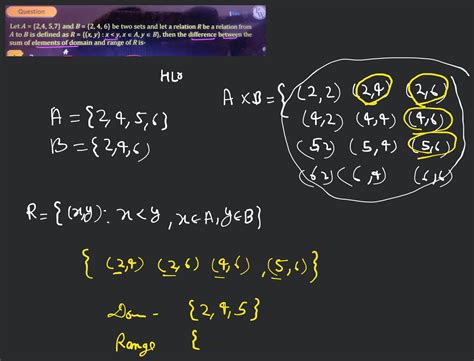 Question
Let A = {2,4, 5,7} and B = {2, 4, 6} be two sets and let a relation R be a relation from
A to B is defined as R = {(x, y) : x < y, x ∈ A, y ∈ B}, then the difference between the
sum of elements of domain and range of R is-
A = {2,4,5,6}
B = {2,4,6}
A×B = { (2,2) (2,4) (2,6)
(4,2) (4,4) (4,6)
(5 2) (5,4) (5,6)
(6 2) (6,4) (6,6)
R = {(x,y) : x < y, x∈A, y∈B}
{ (2,4) (2,6) (4,6) , (5,6)}
Dom - {2,4,5}
Range {